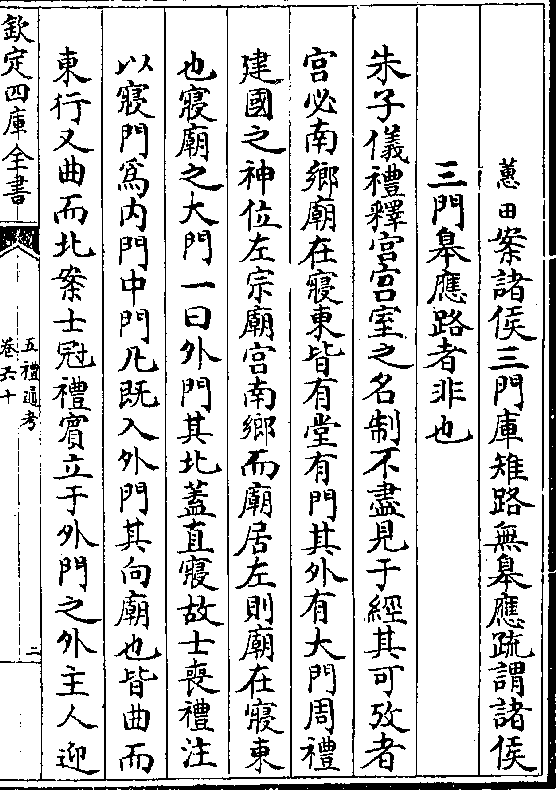 蕙田案諸侯三門庫雉路無臯應疏謂諸侯
三門臯應路者非也
朱子儀禮釋宫宫室之名制不盡見于經其可攷者
宫必南鄉廟在寢東皆有堂有門其外有大門周禮
建國之神位左宗廟宫南鄉而廟居左則廟在寢東
也寢廟之大門一曰外門其北蓋直寢故士喪禮注
以寢門為内門中門凡既入外門其向廟也皆曲而
東行又曲而北案士冠禮賓立于外門之外主人迎
欽定四庫全書
五禮通考
卷六十
二